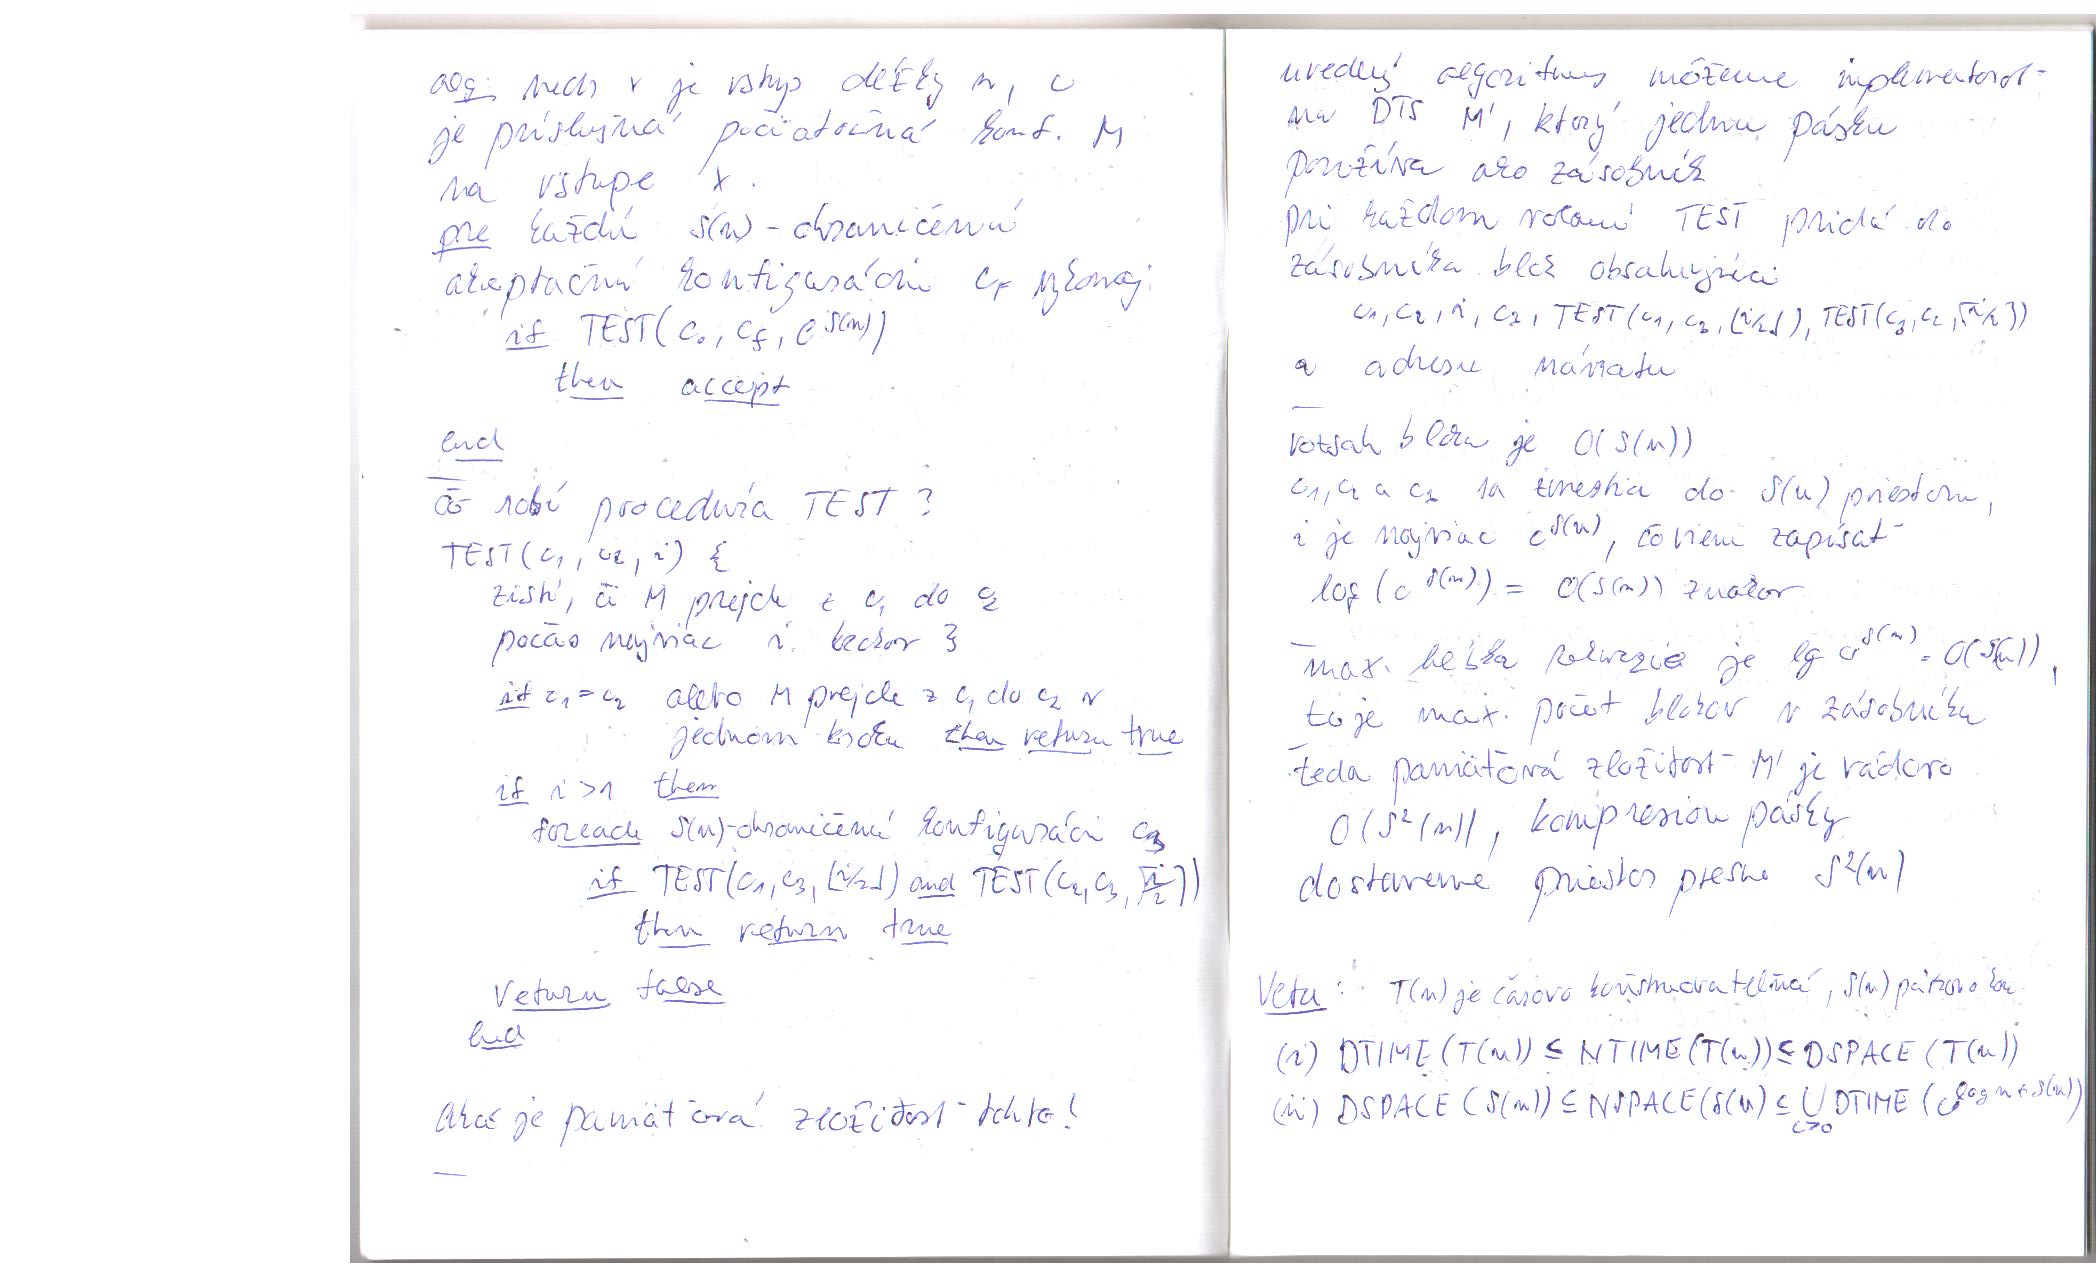 alg: nech x je vstup dĺžky n, c
je príslušná počiatočná konf. M
na vstupe x.
pre každú S(n)-ohraničenú
akceptačnú konfiguráciu c_f vykonaj
if TEST(c₀, c_f, c^S(n))
then accept
end
čo robí procedúra TEST?
TEST(c₁, c₂, i) {
zistí, či M prejde z c₁ do c₂
počas najviac i krokov }
if c₁=c₂ alebo M prejde z c₁ do c₂ v
jednom kroku then return true
if i>1 then
foreach S(n)-ohraničenú konfiguráciu c₃
if TEST(c₁,c₃,⌊i/2⌋) and TEST(c₂,c₃,⌈i/2⌉)
then return true
return false
end
Aká je pamäťová zložitosť tohto!
uvedený algoritmus môžeme implementovať
na DTS M', ktorý jednu pásku
používa ako zásobník
pri každom volaní TEST pridá do
zásobníka blok obsahujúci
c₁,c₂,i,c₂, TEST(c₁,c₃,⌊i/2⌋), TEST(c₃,c₂,⌈i/2⌉)
a adresu návratu
rozsah bloku je O(S(n))
c₁,c₂ a c₃ sa zmestia do S(n) priestoru,
i je najviac c^S(n), čo viem zapísať
log(c^S(n)) = O(S(n)) znakov
max. hĺbka rekurzie je lg c^S(n) = O(S(n)),
to je max. počet blokov v zásobníku
teda pamäťová zložitosť M' je rádovo
O(S²(n)), kompresiou pásky
dostaneme priestor presne S²(n)
Veta: T(n) je časovo konštruovateľná, S(n) páskovo kon.
(i) DTIME(T(n)) ⊆ NTIME(T(n)) ⊆ DSPACE(T(n))
(ii) DSPACE(S(n)) ⊆ NSPACE(S(n) ⊆ ∪_{c>0} DTIME(c^{log n + S(n)})